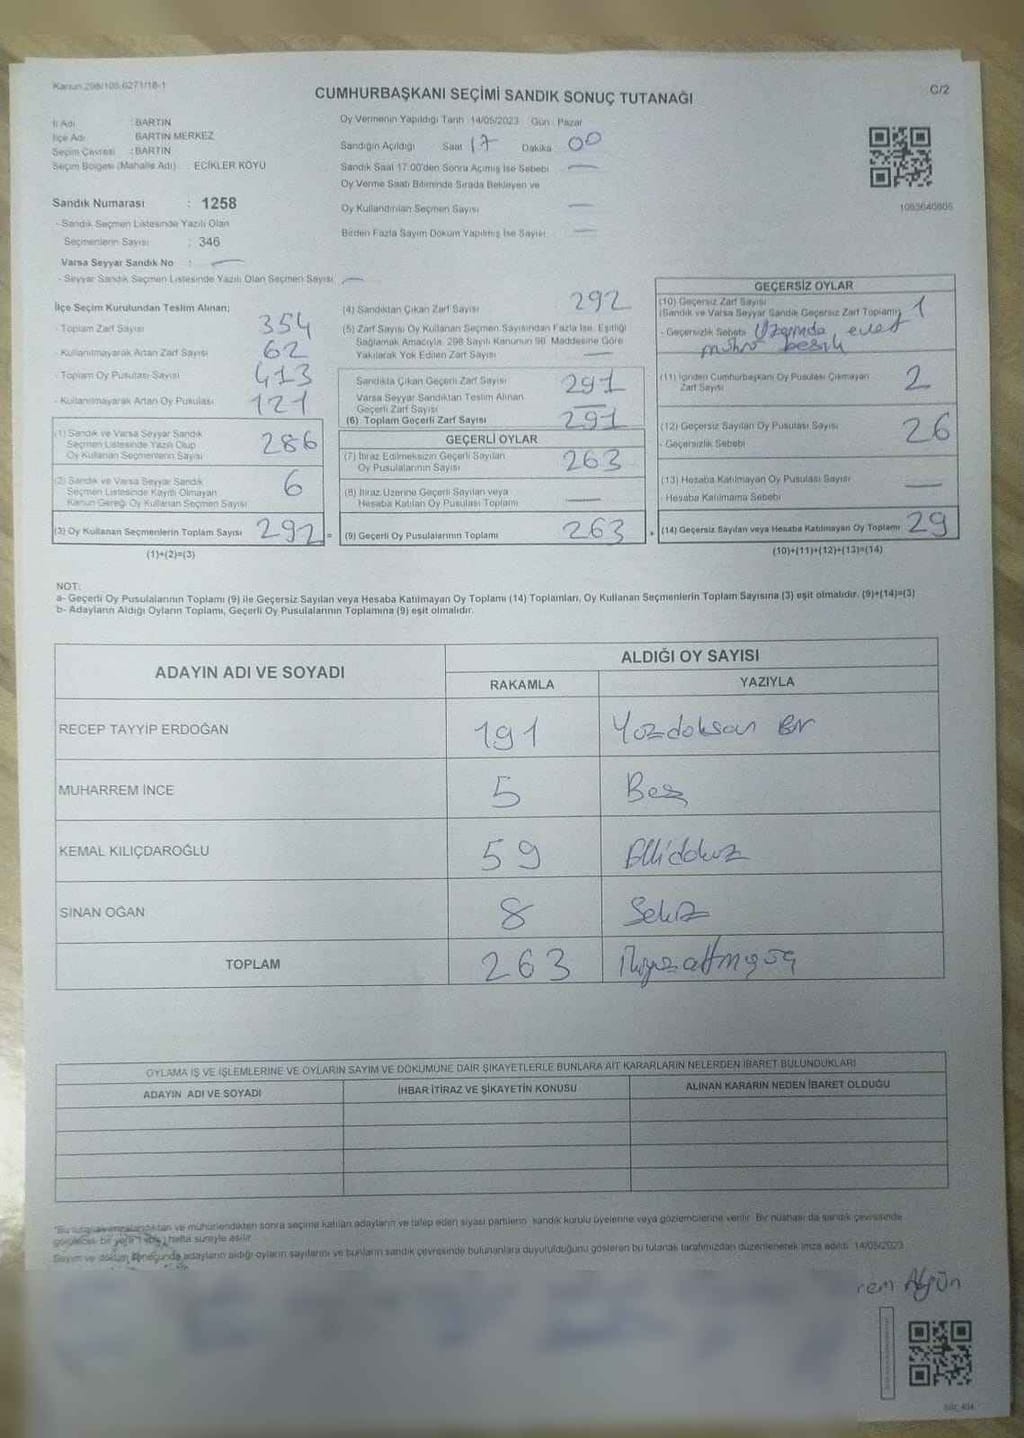 Kanun 298/105,6271/18-1
CUMHURBAŞKANI SEÇİMİ SANDIK SONUÇ TUTANAĞI
C/2
İl Adı : BARTIN
İlçe Adı : BARTIN MERKEZ
Seçim Çevresi : BARTIN
Seçim Bölgesi (Mahalle Adı) : ECİKLER KÖYÜ
Oy Vermenin Yapıldığı Tarih : 14/05/2023 Gün : Pazar
Sandığın Açıldığı Saat 17 Dakika 00
Sandık Saat 17:00'den Sonra Açılmış İse Sebebi —
Oy Verme Saati Bitiminde Sırada Bekleyen ve
Oy Kullandırılan Seçmen Sayısı —
Birden Fazla Sayım Döküm Yapılmış İse Sayısı —
1083640805
Sandık Numarası : 1258
- Sandık Seçmen Listesinde Yazılı Olan
Seçmenlerin Sayısı : 346
Varsa Seyyar Sandık No : —
- Seyyar Sandık Seçmen Listesinde Yazılı Olan Seçmen Sayısı —
İlçe Seçim Kurulundan Teslim Alınan;
- Toplam Zarf Sayısı 354
- Kullanılmayarak Artan Zarf Sayısı 62
- Toplam Oy Pusulası Sayısı 413
- Kullanılmayarak Artan Oy Pusulası 121
(1) Sandık ve Varsa Seyyar Sandık
Seçmen Listesinde Yazılı Olup
Oy Kullanan Seçmenlerin Sayısı 286
(2) Sandık ve Varsa Seyyar Sandık
Seçmen Listesinde Kayıtlı Olmayan
Kanun Gereği Oy Kullanan Seçmen Sayısı 6
(3) Oy Kullanan Seçmenlerin Toplam Sayısı 292 =
(1)+(2)=(3)
(4) Sandıktan Çıkan Zarf Sayısı 292
(5) Zarf Sayısı Oy Kullanan Seçmen Sayısından Fazla İse, Eşitliği
Sağlamak Amacıyla, 298 Sayılı Kanunun 98. Maddesine Göre
Yakılarak Yok Edilen Zarf Sayısı —
Sandıkta Çıkan Geçerli Zarf Sayısı 291
Varsa Seyyar Sandıktan Teslim Alınan
Geçerli Zarf Sayısı —
(6) Toplam Geçerli Zarf Sayısı 291
GEÇERLİ OYLAR
(7) İtiraz Edilmeksizin Geçerli Sayılan
Oy Pusulalarının Sayısı 263
(8) İtiraz Üzerine Geçerli Sayılan veya
Hesaba Katılan Oy Pusulası Toplamı —
(9) Geçerli Oy Pusulalarının Toplamı 263 +
GEÇERSİZ OYLAR
(10) Geçersiz Zarf Sayısı
(Sandık ve Varsa Seyyar Sandık Geçersiz Zarf Toplamı) 1
- Geçersizlik Sebebi Üzerinde evet
mührü basılı
(11) İçinden Cumhurbaşkanı Oy Pusulası Çıkmayan
Zarf Sayısı 2
(12) Geçersiz Sayılan Oy Pusulası Sayısı 26
- Geçersizlik Sebebi
(13) Hesaba Katılmayan Oy Pusulası Sayısı —
- Hesaba Katılmama Sebebi
(14) Geçersiz Sayılan veya Hesaba Katılmayan Oy Toplamı 29
(10)+(11)+(12)+(13)=(14)
NOT:
a- Geçerli Oy Pusulalarının Toplamı (9) ile Geçersiz Sayılan veya Hesaba Katılmayan Oy Toplamı (14) Toplamları, Oy Kullanan Seçmenlerin Toplam Sayısına (3) eşit olmalıdır. (9)+(14)=(3)
b- Adayların Aldığı Oyların Toplamı, Geçerli Oy Pusulalarının Toplamına (9) eşit olmalıdır.
ADAYIN ADI VE SOYADI
ALDIĞI OY SAYISI
RAKAMLA YAZIYLA
RECEP TAYYİP ERDOĞAN 191 Yüzdoksan Bir
MUHARREM İNCE 5 Beş
KEMAL KILIÇDAROĞLU 59 Ellidokuz
SİNAN OĞAN 8 Sekiz
TOPLAM 263 İkiyüzaltmışüç
OYLAMA İŞ VE İŞLEMLERİNE VE OYLARIN SAYIM VE DÖKÜMÜNE DAİR ŞİKAYETLERLE BUNLARA AİT KARARLARIN NELERDEN İBARET BULUNDUKLARI
ADAYIN ADI VE SOYADI İHBAR İTİRAZ VE ŞİKAYETİN KONUSU ALINAN KARARIN NEDEN İBARET OLDUĞU
"Bu tutanak imzalandıktan ve mühürlendikten sonra seçime katılan adayların ve talep eden siyasi partilerin sandık kurulu üyelerine veya gözlemcilerine verilir. Bir nüshası da sandık çevresinde
bir yere 1 hafta süreyle asılır.
Sayım ve döküm sonucunda adayların aldığı oyların sayılarını ve bunların sandık çevresinde bulunanlara duyurulduğunu gösteren bu tutanak tarafımızdan düzenlenerek imza edildi. 14/05/2023
rem Akgün